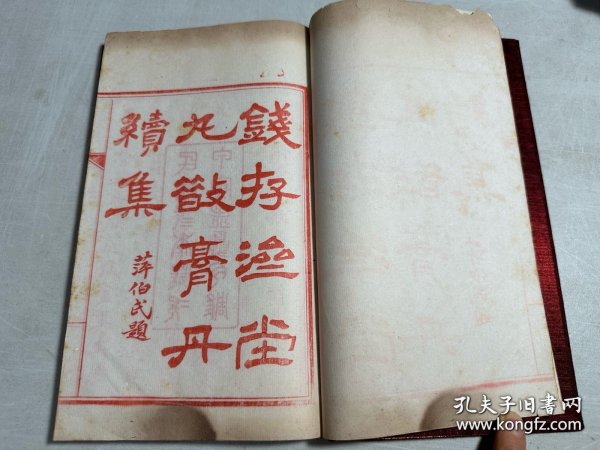 錢存濟堂
丸散膏丹
續集
萍伯氏題
孔夫子旧书网
www.kongfz.com